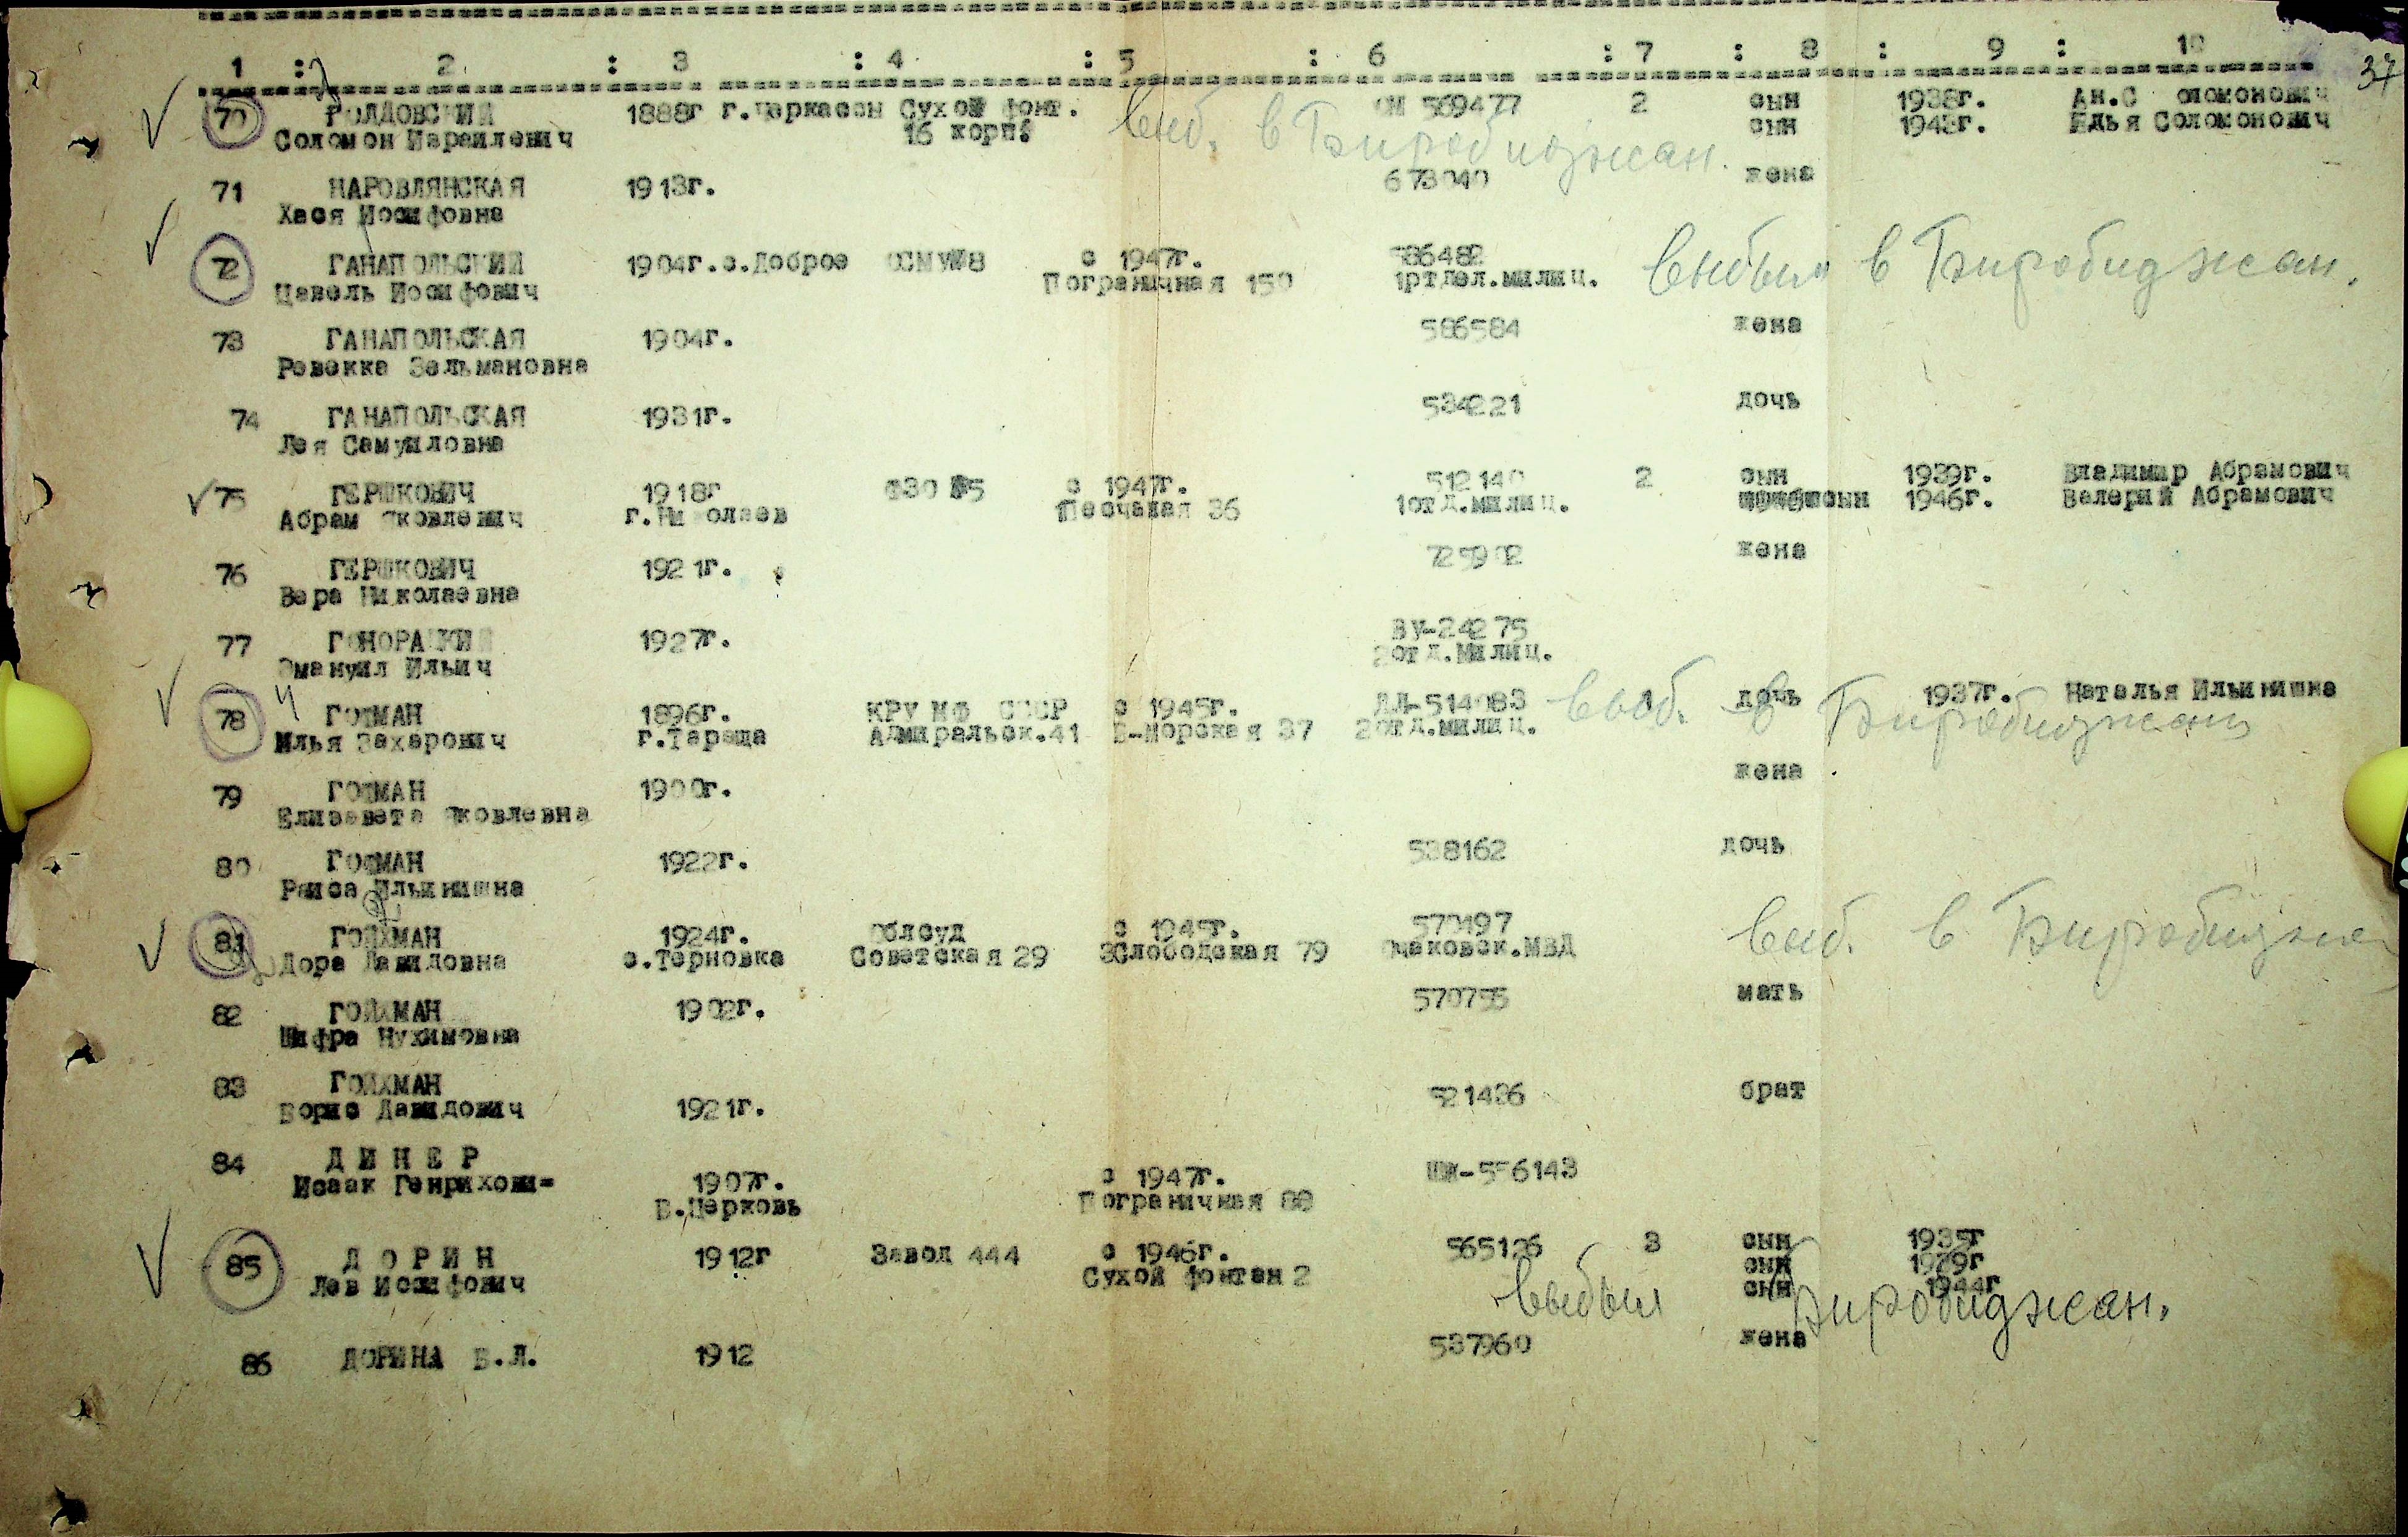 1 : 2 : 3 : 4 : 5 : 6 : 7 : 8 : 9 : 10
37
70 ГОЛДОВСКИЙ 1888г г.Черкассы Сухой фонт. 569477 2 сын 1938г. Ан.С оломонович
Соломон Израилевич 16 корп. сын Илья Соломонович
выб. в Биробиджан.
71 НАРОВЛЯНСКАЯ 1913г. 673040 жена
Хася Иосифовна
72 ГАНАПОЛЬСКИЙ 1904г.с.Доброе ОСМУ№8 с 1947г. 586482 выбыл в Биробиджан.
Цавель Иосифович Пограничная 150 милиц.
73 ГАНАПОЛЬСКАЯ 1904г. 586584 жена
Ревекка Зельмановна
74 ГАНАПОЛЬСКАЯ 1931г. 534221 дочь
Лея Самуиловна
75 ГЕРШКОВИЧ 1918г ФЗО №5 с 1947г. 512140 2 сын 1939г. Владимир Абрамович
Абрам Яковлевич г.Николаев Песчаная 36 1отд.милиц. сын 1946г. Валерий Абрамович
76 ГЕРШКОВИЧ 1921г. 725902 жена
Вера Николаевна
77 1927г. ВУ-24275
Эмануил Ильич 2отд.Милиц.
78 ГОФМАН 1896г. КРУ МФ СССР с 1945г. 514083 дочь 1937г. Наталья Ильинишна
Илья Захарович г.Тараща Адмиральск.41 Б-Морская 37 2отд.милиц.
выб. в Биробиджан
79 ГОФМАН 1900г. жена
Елизавета Яковлевна
80 ГОФМАН 1922г. 538162 дочь
Раиса Ильинишна
81 ГОЙХМАН 1924г. Облсуд с 1945г. 570497 выб. в
Дора Давидовна с.Терновка Советская 29 3Слободская 79 Очаковск.МВД
82 ГОЙХМАН 1902г. 570755 мать
Шифра Нухимовна
83 ГОЙХМАН 521436 брат
Борис Давидович 1921г.
84 Д И Н Е Р с 1947г. 556143
Исаак Генрихови- 1907г. Пограничная 88
Б.Церковь
85 Д О Р И Н 1912г Завод 444 с 1946г. 565126 3 сын 1935г
Лев Иосифович Сухой фонтан 2 сын 1939г
сын 1944г
выбыл Биробиджан.
86 ДОРИНА Б.Л. 1912 537960 жена